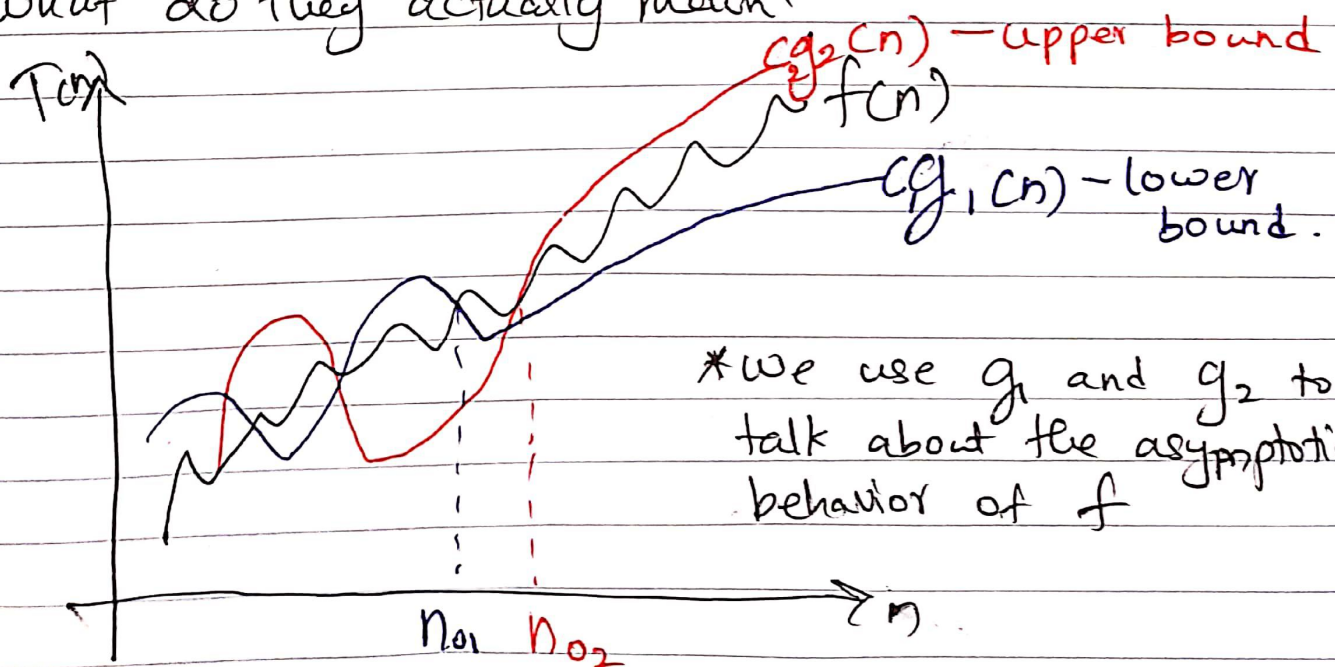 what do they actually mean?
T(n)
c₂g₂(n) - upper bound
f(n)
c₁g₁(n) - lower
bound.
*we use g₁ and g₂ to
talk about the asymptoti
behavior of f
n
n₀₁ n₀₂